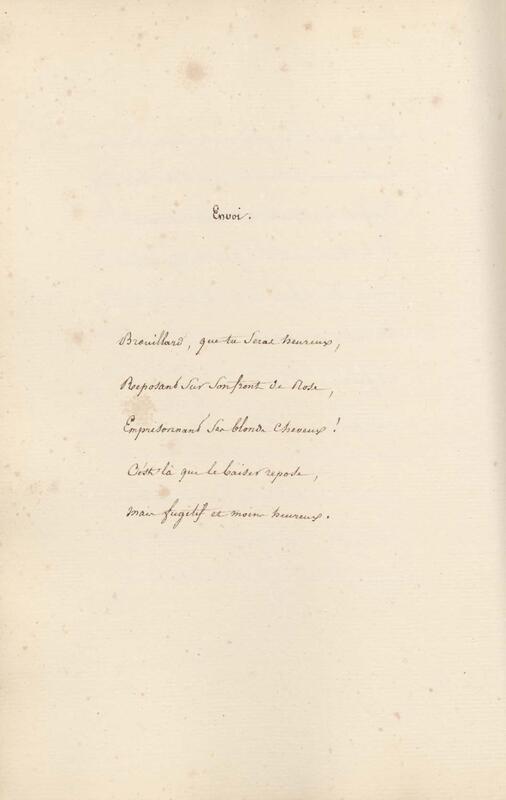 Envoi.
Brouillard, que tu seras heureux,
Reposant sur son front de Rose,
Emprisonnant ses blonds cheveux !
C'est là que le baiser repose,
mais fugitif et moins heureux.